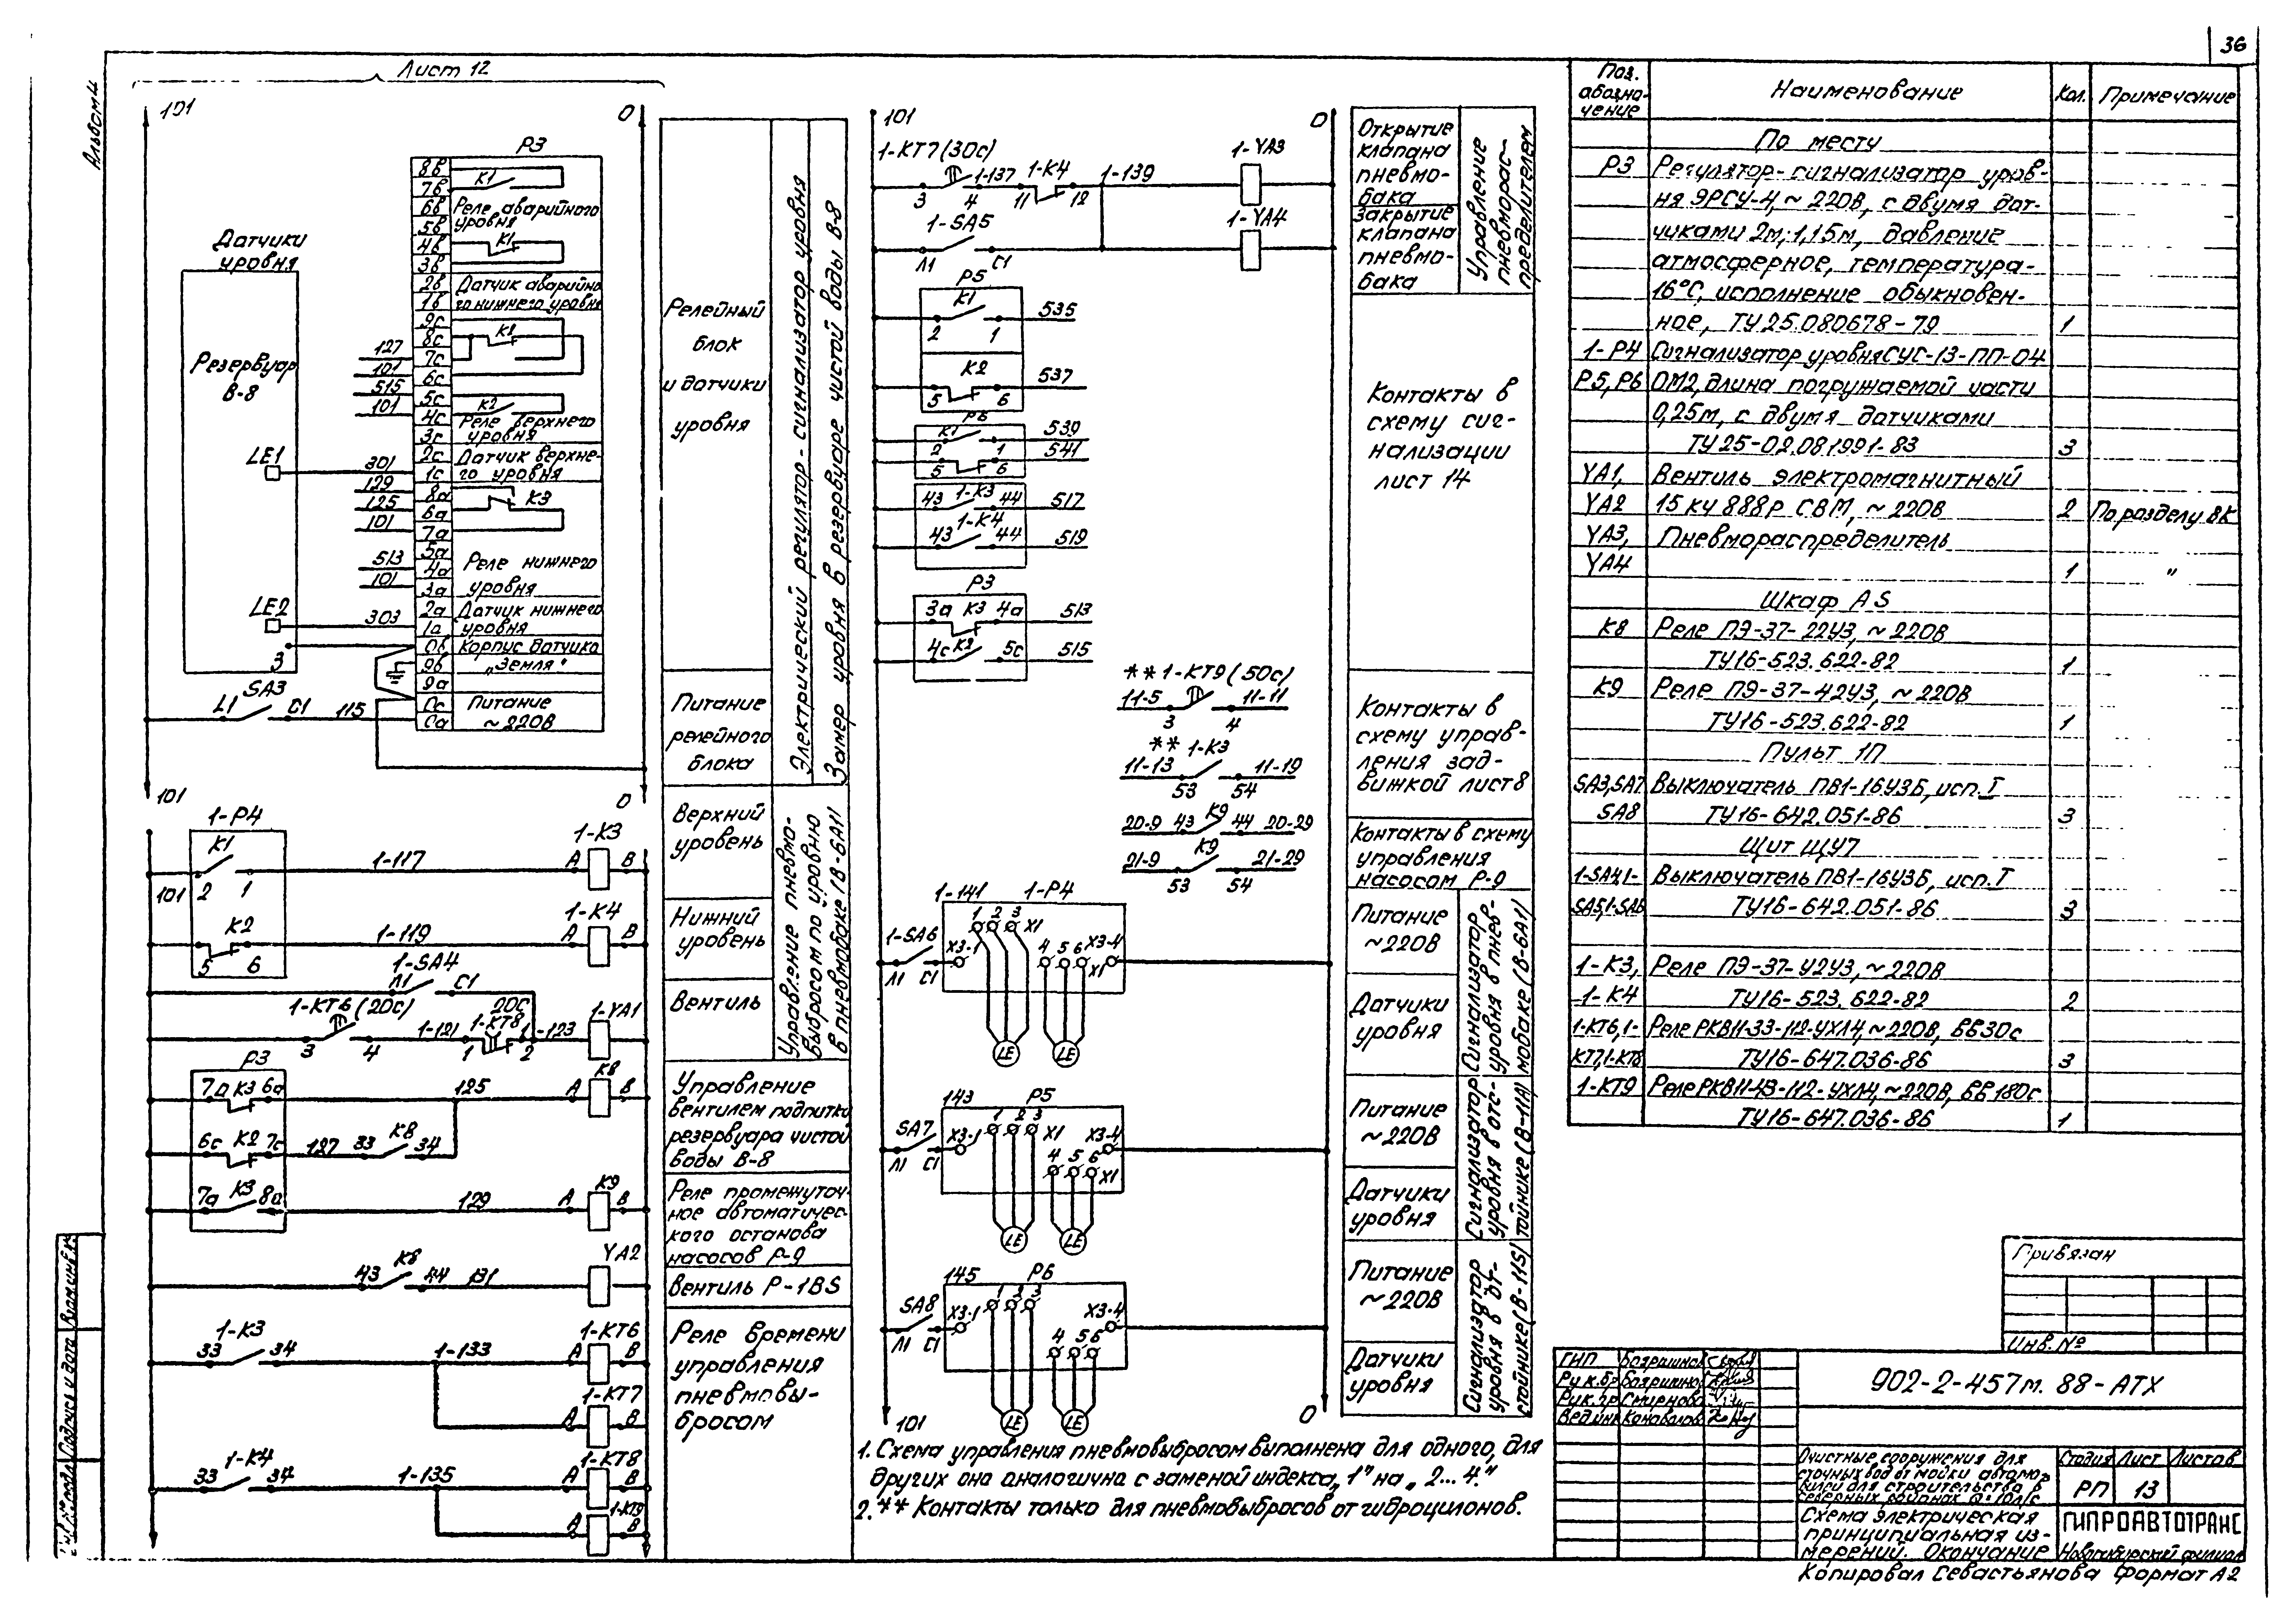 36
Альбом 4
Лист 12
101
0
Датчики
уровня
Резервуар
В-8
LE1
LE2
3
SA3
L1
C1
115
127
101
515
101
301
129
125
101
513
101
303
Р3
8в
7в
К1
6в
Реле аварийного
уровня
5в
4в
К1
3в
2в
Датчик аварийно
1в
го нижнего уровня
9с
8с
7с
6с
5с
4с
К2
3с
Реле верхнего
уровня
2с
Датчик верхне-
1с
го уровня
8а
К3
6а
7а
5а
4а
Реле нижнего
3а
уровня
2а
Датчик нижнего
1а
уровня
0в
Корпус датчика
9в
„Земля"
9а
0с
Питание
0а
~220В
101
0
1-Р4
К1
2
1
101
1-117
А
1-К3
В
К2
5
6
1-119
А
1-К4
В
1-SA4
Л1
С1
1-КТ6 (20с)
3
4
1-121
20с
1-КТ8
1
2
1-123
1-YA1
Р3
7а К3 6а
125
А
К8
В
6с К2 7с
127
33
К8
34
7а К3 8а
129
А
К9
В
43
К8
44
131
YA2
1-К3
33
34
1-133
А
1-КТ6
В
А
1-КТ7
В
1-К4
33
34
1-135
А
1-КТ8
В
А
1-КТ9
В
Релейный
блок
и датчики
уровня
Питание
релейного
блока
Электрический регулятор-сигнализатор уровня
Замер уровня в резервуаре чистой воды В-8
Верхний
уровень
Нижний
уровень
Вентиль
Управление пневмо-
выбросом по уровню
в пневмобаке (В-6А1)
Управление
вентилем подпитки
резервуара чистой
воды В-8
Реле промежуточ-
ное автоматичес-
кого останова
насосов Р-9
Вентиль Р-1ВS
Реле времени
управления
пневмовы-
бросом
101
0
1-КТ7 (30с)
3
4
1-137
1-К4
11
12
1-139
1-YA3
1-SA5
Л1
С1
1-YA4
Р5
К1
2
1
535
К2
5
6
537
Р6
К1
2
1
539
5
6
541
43 1-К3 44
517
1-К4
43
44
519
Р3
3а К3 4а
513
4с К2 5с
515
** 1-КТ9 (50с)
11-5
11-11
3
4
** 1-К3
11-13
11-19
53
54
20-9 43 К9 44 20-29
21-9
К9
21-29
53
54
1-141
1-Р4
1 2 3 X1
1-SA6
Л1 С1
X3-1
4 5 6 X3-4
X1
LE
LE
143
Р5
1 2 3
X1
SA7
Л1
С1
X3-1
4 5 6
X1
X3-4
LE
LE
145
Р6
1 2 3
SA8
Л1
С1
X3-1
4 5 6
X3-4
LE
LE
101
0
Открытие
клапана
пневмо-
бака
Закрытие
клапана
пневмо-
бака
Управление
пневморас-
пределителем
Контакты в
схему сиг-
нализации
лист 14
Контакты в
схему управ-
ления зад-
вижкой лист 8
Контакты в схему
управления
насосом Р-9
Питание
~220В
Датчики
уровня
Сигнализатор
уровня в пнев-
мобаке (В-6А1)
Питание
~220В
Датчики
уровня
Сигнализатор
уровня в отс-
тойнике (В-1(А)
Питание
~220В
Датчики
уровня
Сигнализатор
уровня в от-
стойнике (В-11S)
1. Схема управления пневмовыбросом выполнена для одного, для
других она аналогична с заменой индекса „1" на „2...4."
2. ** Контакты только для пневмовыбросов от гидроцилонов.
Поз. обозна- чение
Наименование
Кол.
Примечание
По месту
Р3
Регулятор-сигнализатор уров-
ня ЭРСУ-4, ~220В, с двумя дат-
чиками 2м; 1,15м, давление
атмосферное, температура-
16°С, исполнение обыкновен-
ное, ТУ25.080678-79
1
1-Р4
Сигнализатор уровня СУС-13-ПП-04
Р5, Р6
ОМ2, длина погружаемой части
0,25м, с двумя датчиками
ТУ25-02.081991-83
3
YA1,
Вентиль электромагнитный
YA2
15 кч 888р СВМ, ~220В
2
По разделу ВК
YA3,
Пневмораспределитель
YA4
1
"
Шкаф AS
К8
Реле ПЭ-37-22У3, ~220В
ТУ16-523.622-82
1
К9
Реле ПЭ-37-42У3, ~220В
ТУ16-523.622-82
1
Пульт 1П
SA3, SA7
Выключатель ПВ1-16У3Б, исп. I
SA8
ТУ16-642.051-86
3
Щит ЩУ7
1-SA4, 1-
Выключатель ПВ1-16У3Б, исп. I
SA5, 1-SA6
ТУ16-642.051-86
3
1-К3,
Реле ПЭ-37-42У3, ~220В
1-К4
ТУ16-523.622-82
2
1-КТ6, 1-
Реле РКВ11-33-112-УХЛ4, ~220В, ВВ30с
КТ7, 1-КТ8
ТУ16-647.036-86
3
1-КТ9
Реле РКВ11-43-112-УХЛ4, ~220В, ВВ180с
ТУ16-647.036-86
1
Привязан
Инв. №
ГИП
Бояршинов
Рук.бр
Бояршинов
Рук.гр
Смирнова
Вед.инж
Коновалов
902-2-457м. 88-АТХ
Очистные сооружения для
сточных вод от мойки автомо-
билей для строительства в
северных районах Q=10л/с
Стадия
Лист
Листов
РП
13
Схема электрическая
принципиальная из-
мерений. Окончание
ГИПРОАВТОТРАНС
Новосибирский филиал
Копировал Севастьянова Формат А2
Взам.инв.№
Подпись и дата